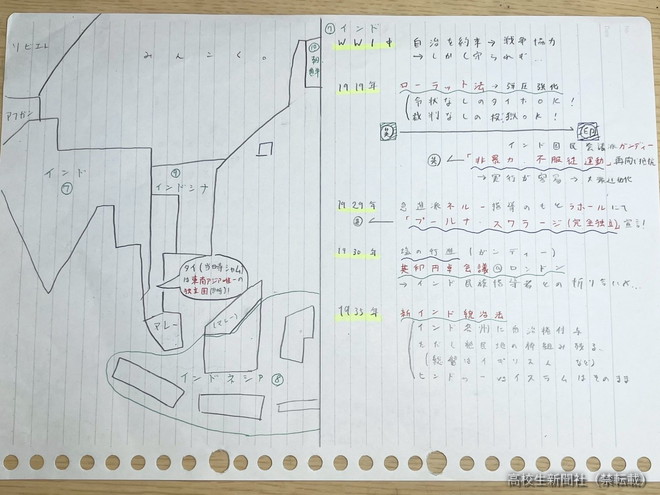 ソビエト
みんこく。
⑩
朝
鮮
アフガン
インド
⑦
⑨
インドシナ
タイ(当時シャム)
は東南アジア唯一の
独立国
マレー
(マレー)
インドネシア ⑧
⑦ インド
WWⅠ中 自治を約束→戦争協力
→しかし守られず…
1919年 ローラット法→弾圧強化
令状なしのタイホOK!
裁判なしの投獄OK!
英 → 印
インド国民会議派ガンディー
英 ← 「非暴力・不服従運動」
1929年 急進派ネルー指導のもとラホールにて
英 ← 「プールナ・スワラージ(完全独立)」宣言!
1930年 塩の行進(ガンディー)
英印円卓会議 ロンドン
→インド民族指導者との折り
1935年 新インド統治法
インド各州に自治権付与
ただし
(総督はイギリス人 など)
高校生新聞社(禁転載)